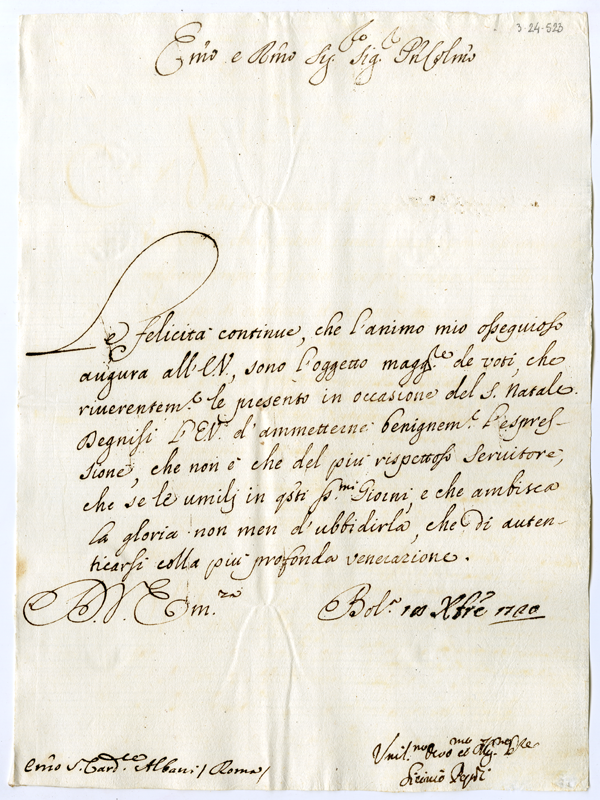 3-24-523
Emo e Rmo Sig.re Sig.re Pn Colmo
Le felicità continue, che l'animo mio ossequioso
augura all'E.V., sono l'oggetto magg.re de voti, che
riverentem.e le presento in occasione del S. Natale.
Degnisi l'E.V. d'ammetterne benignem.e l'espres-
sione, che non è che del più rispettoso servitore,
che se le umilj in qsti ss.mi Giorni, e che ambisca
la gloria non men d'ubbidirla, che di auten-
ticarsi colla più profonda venerazione.
D. V. Em.za Bol.a Xbre
Emo S. Card.le Albani / Roma /
Umil.mo Devo.mo et Obl.